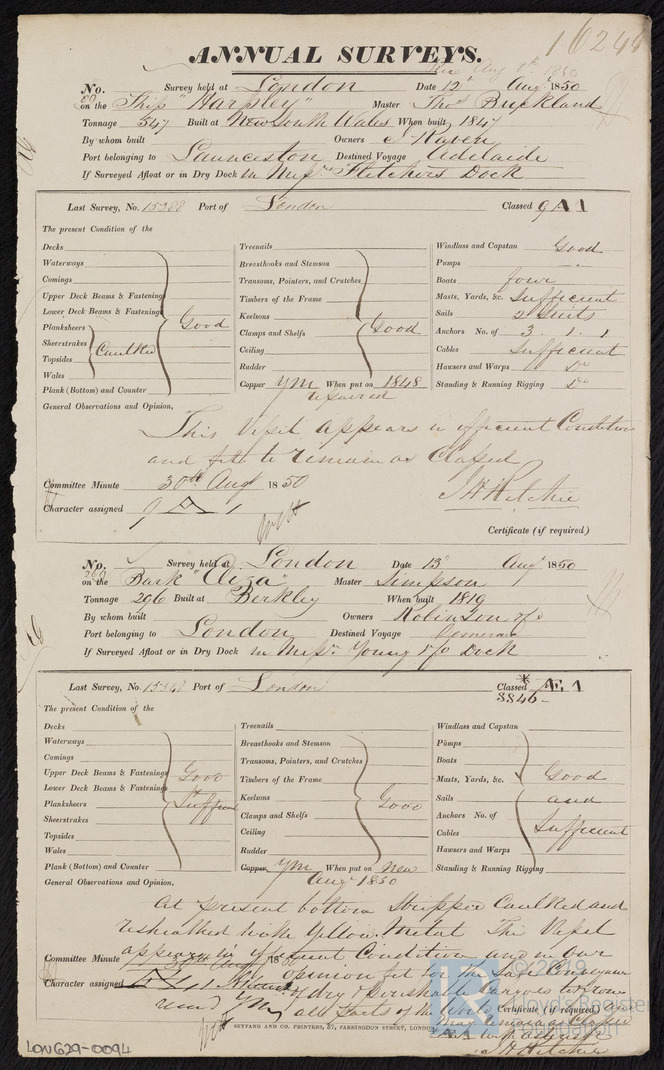 16244
ANNUAL SURVEYS.
No. Survey held at London Date 12 Augt 1850
on the Ship "Harpley" Master Thos Buckland
Tonnage 547 Built at New South Wales When built 1847
By whom built Owners J Raven
Port belonging to Launceston Destined Voyage Adelaide
If Surveyed Afloat or in Dry Dock in Messrs Fletchers Dock
Last Survey, No. 15388 Port of London Classed 9 A 1
The present Condition of the
Decks
Waterways
Comings
Upper Deck Beams & Fastening
Lower Deck Beams & Fastening
Planksheers
Sheerstrakes
Topsides
Wales
Plank (Bottom) and Counter
Caulked
Good
Treenails
Breasthooks and Stemson
Transoms, Pointers, and Crutches
Timbers of the Frame
Keelsons
Clamps and Shelfs
Ceiling
Rudder
Good
Copper YM When put on 1848
repaired
Windlass and Capstan Good
Pumps "
Boats four
Masts, Yards, &c. Sufficient
Sails 2 Suits
Anchors No. of 3 . 1 . 1
Cables Sufficient
Hawsers and Warps Do
Standing & Running Rigging Do
General Observations and Opinion,
This Vessel appears in efficient Condition
and fit to remain as Classed
J H Ritchie
Committee Minute 30th Augt 1850
Character assigned 9 A 1
Certificate (if required)
No. Survey held at London Date 13 Augt 1850
260
on the Bark "Eliza" Master Simpson
Tonnage 296 Built at Berkley When built 1819
By whom built Owners Robinson & Co
Port belonging to London Destined Voyage Demerara
If Surveyed Afloat or in Dry Dock in Messrs Young & Co Dock
Last Survey, No. 15348 Port of London Classed * Æ 1
8846
The present Condition of the
Decks
Waterways
Comings
Upper Deck Beams & Fastenings
Lower Deck Beams & Fastenings
Planksheers
Sheerstrakes
Topsides
Wales
Plank (Bottom) and Counter
Good
Sufficient
Treenails
Breasthooks and Stemson
Transoms, Pointers, and Crutches
Timbers of the Frame
Keelsons
Clamps and Shelfs
Ceiling
Rudder
Good
Copper YM When put on New
Augt 1850
Windlass and Capstan
Pumps
Boats
Masts, Yards, &c.
Sails
Anchors No. of
Cables
Hawsers and Warps
Standing & Running Rigging
Good
and
Sufficient
General Observations and Opinion,
At present bottom Stripped Caulked and
resheathed with Yellow Metal This Vessel
appears in efficient Condition and in our
opinion fit for the Safe Conveyance
of dry & perishable Cargoes to & from
all Parts of the World
Committee Minute 30th Augt 1850
Character assigned Æ 1
Certificate (if required)
J H Ritchie
SEYFANG AND CO. PRINTERS, 57, FARRINGDON STREET, LONDON
LON629-0094
LR
© 2019
Lloyd's Register
Foundation